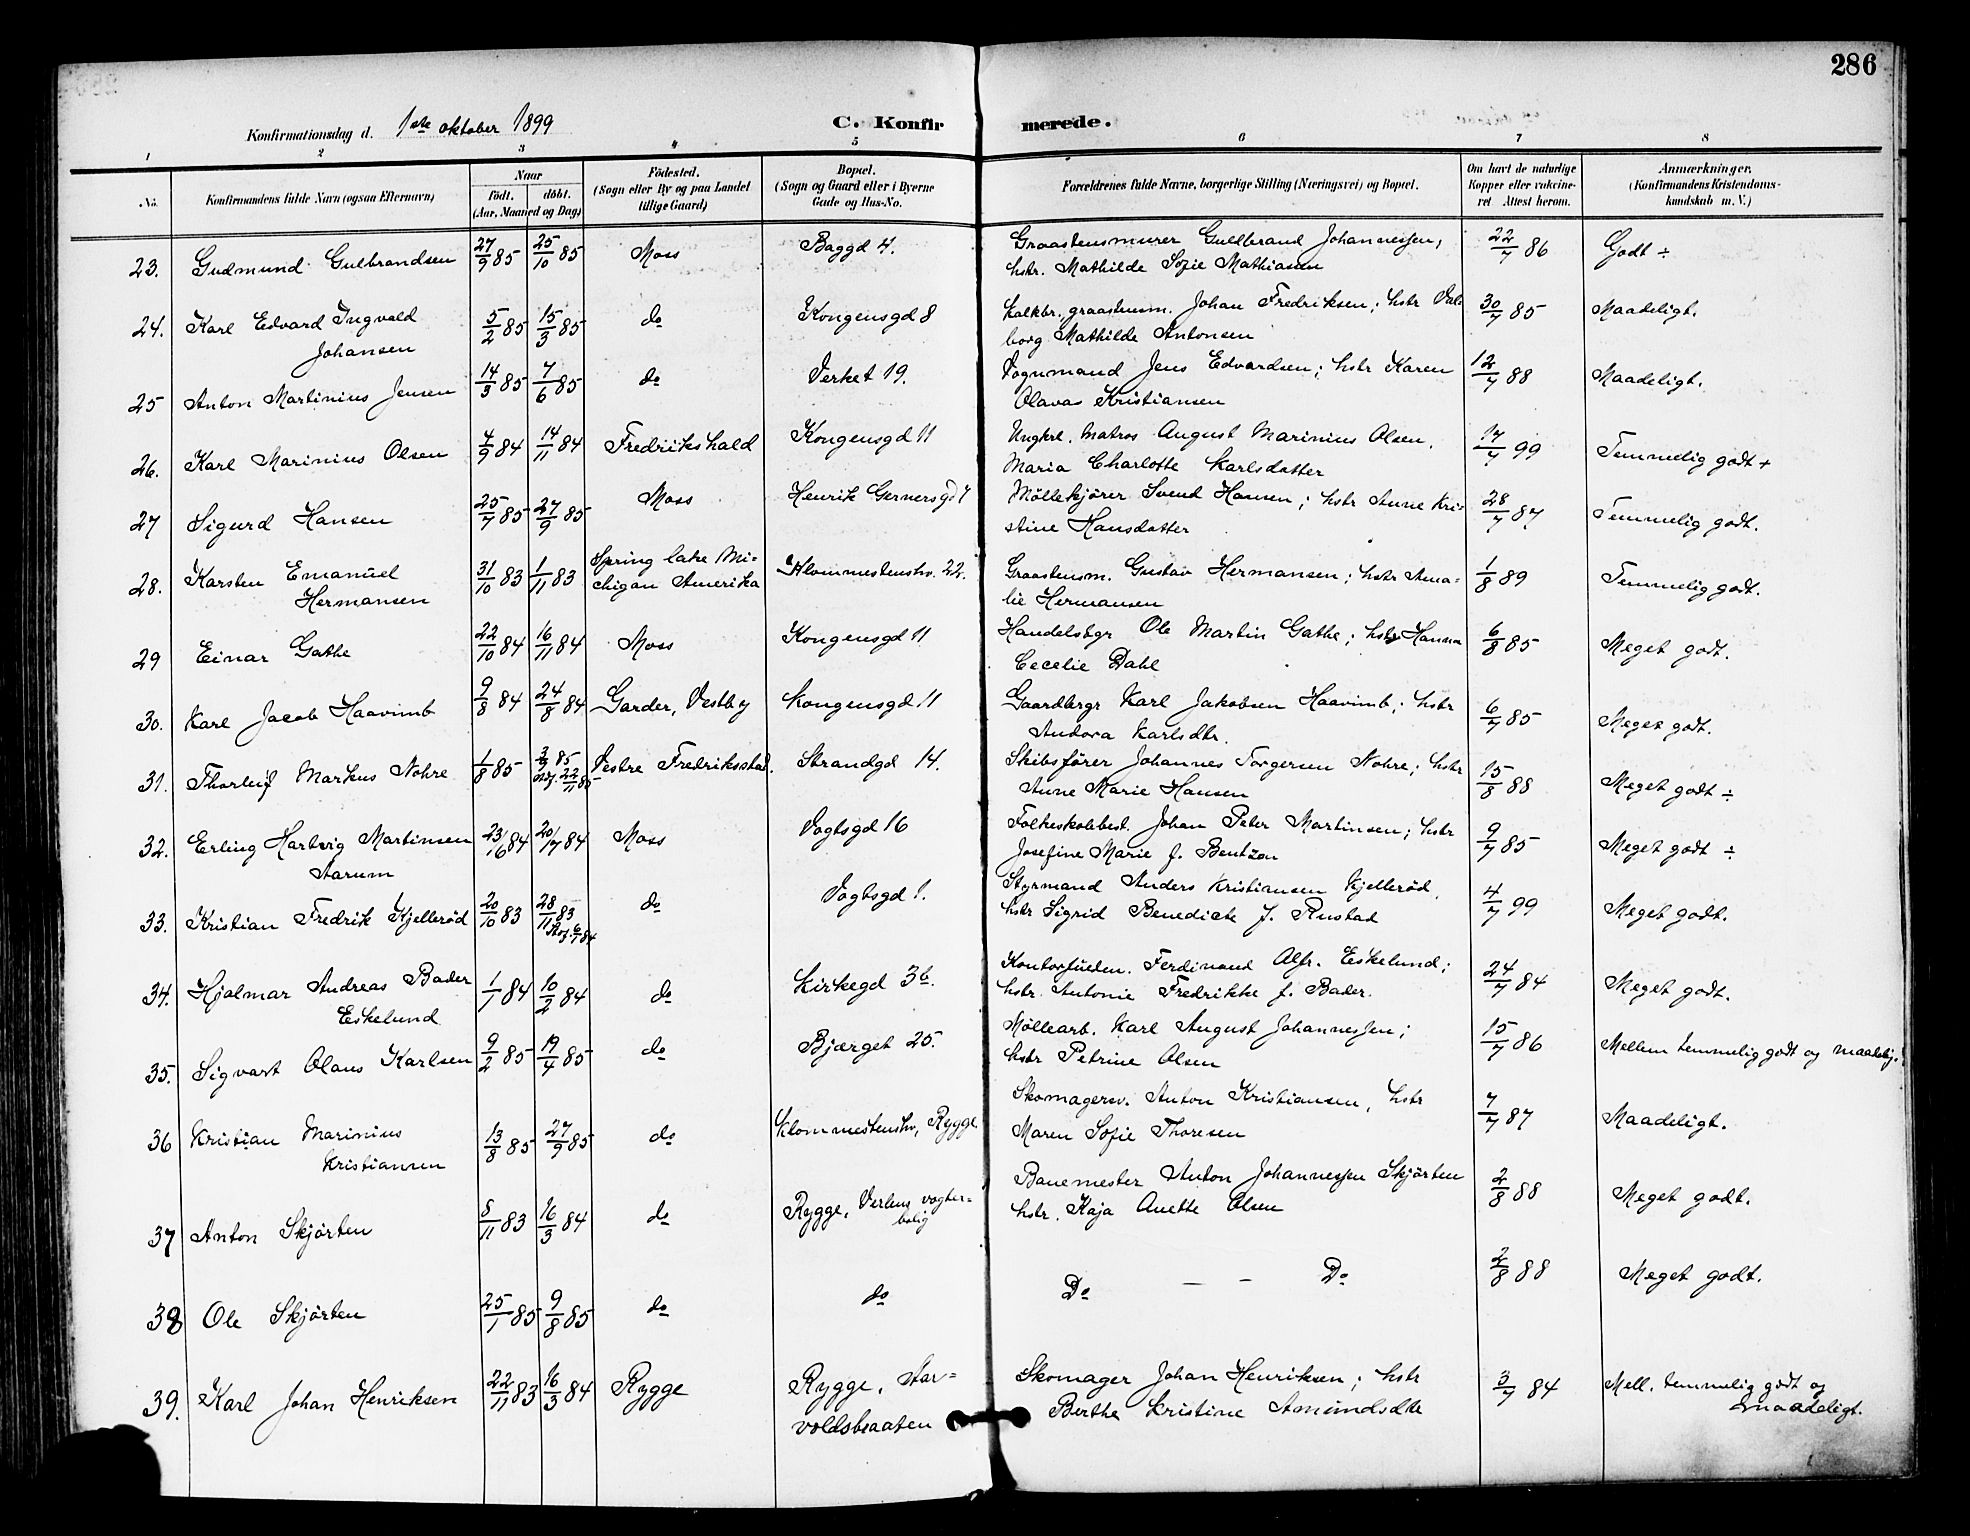 286
Konfirmationsdag d. 1ste oktober 1899 C. Konfirmerede.
1 2 3 4 5 6 7 8
No. Konfirmandens fulde Navn (ogsaa Efternavn) Naar født. døbt. (Aar, Maaned og Dag) Födested. (Sogn eller By og paa Landet tillige Gaard) Bopæl. (Sogn og Gaard eller i Byerne Gade og Hus-No. Forældrenes fulde Navne, borgerlige Stilling (Næringsvei) og Bopæl. Om havt de naturlige Kopper eller vaccineret Attest herom. Anmærkninger. (Konfirmandens Kristendomskundskab m. V.)
23. Gudmund Gulbrandsen 27/9 85 25/10 85 Moss Baggd 4. Graastensmurer Guldbrand Johannessen, hstr. Mathilde Sofie Mathiasen 22/7 86 Godt ÷
24. Karl Edvard Ingvald Johansen 5/2 85 15/3 85 do Kongensgd 8 Kalkbr., graastensm. Johan Fredriksen; hstr Valborg Mathilde Antonsen 30/7 85 Maadeligt.
25 Anton Martinius Jensen 14/3 85 7/6 85 do Verket 19. Vognmand Jens Edvardsen; hstr Karen Olava Kristiansen 12/7 88 Maadeligt.
26. Karl Marinius Olsen 4/9 84 14/11 84 Fredrikshald Kongensgd 11 Ungkrl. Matros August Marinius Olsen, Maria Charlotte Karlsdatter 17/7 99 Temmelig godt +
27 Sigurd Hansen 25/7 85 27/9 85 Moss Henrik Gernersgd 7 Møllekjører Svend Hansen; hstr Anne Kristine Hansdatter 28/7 87 Temmelig godt.
28. Karsten Emanuel Hermansen 31/10 83 1/11 83 Spring lake Michigan Amerika Klommestenshv. 22. Graastensm. Gustav Hermansen; hstr Amalie Hermansen 1/8 89 Temmelig godt.
29 Einar Gathe 22/10 84 16/11 84 Moss Kongensgd 11 Handelsbgr Ole Martin Gathe; hstr Hanna Cecelie Dahl 6/8 85 Meget godt.
30. Karl Jacob Haavimb 9/8 84 24/8 84 Garder, Vestby Kongensgd 11 Gaardbrgr Karl Jakobsen Haavimb; hstr Andora Karlsdtr. 6/7 85 Meget godt.
31. Thorleif Markus Nohre 1/8 85 3/9 85 22/11 85 Vestre Fredriksstad. Strandgd 14. Skibsfører Johannes Torgersen Nohre; hstr Anne Marie Hansen 15/8 88 Meget godt ÷
32. Erling Hartvig Martinsen Aarum 23/6 84 20/7 84 Moss Vogtsgd 16 Folkeskolebest. Johan Peter Martinsen; hstr Josefine Marie f. Bentzon 9/7 85 Meget godt ÷
33. Kristian Fredrik Kjellerød 20/10 83 28/11 83 Stdf. 6/1 84 do Vogtsgd 1. Styrmand Anders Kristiansen Kjellerød, hstr Sigrid Benedicte f. Rustad 4/7 99 Meget godt.
34. Hjalmar Andreas Bader Eskelund 1/1 84 10/2 84 do Kirkegd 36. Kontorfuldm. Ferdinand Alfr. Eskelund; hstr. Antonie Fredrikke f. Bader. 24/7 84 Meget godt.
35. Sigvart Olaus Karlsen 9/2 85 19/4 85 do Bjærget 25. Møllearb. Karl August Johannessen; hstr Petrine Olsen 15/7 86 Mellem temmelig godt og maadelig.
36 Kristian Marinius Kristiansen 13/8 85 27/9 85 do Klommestenshv, Rygge Skomagersv. Anton Kristiansen, hstr Maren Sofie Thoresen 7/7 87 Maadeligt.
37 Anton Skjørten 8/11 83 16/3 84 do Rygge, Verlens vogterbolig Banemester Anton Johannessen Skjørten hstr. Kaja Anette Olsen 2/8 88 Meget godt.
38 Ole Skjørten 25/1 85 9/8 85 do do Do — – Do 2/8 88 Meget godt.
39. Karl Johan Henriksen 22/11 83 16/3 84 Rygge Rygge, Aarvoldsbraaten Skomager Johan Henriksen; hstr Berthe Kristine Amundsdtr 3/7 84 Mell. temmelig godt og maadeligt.